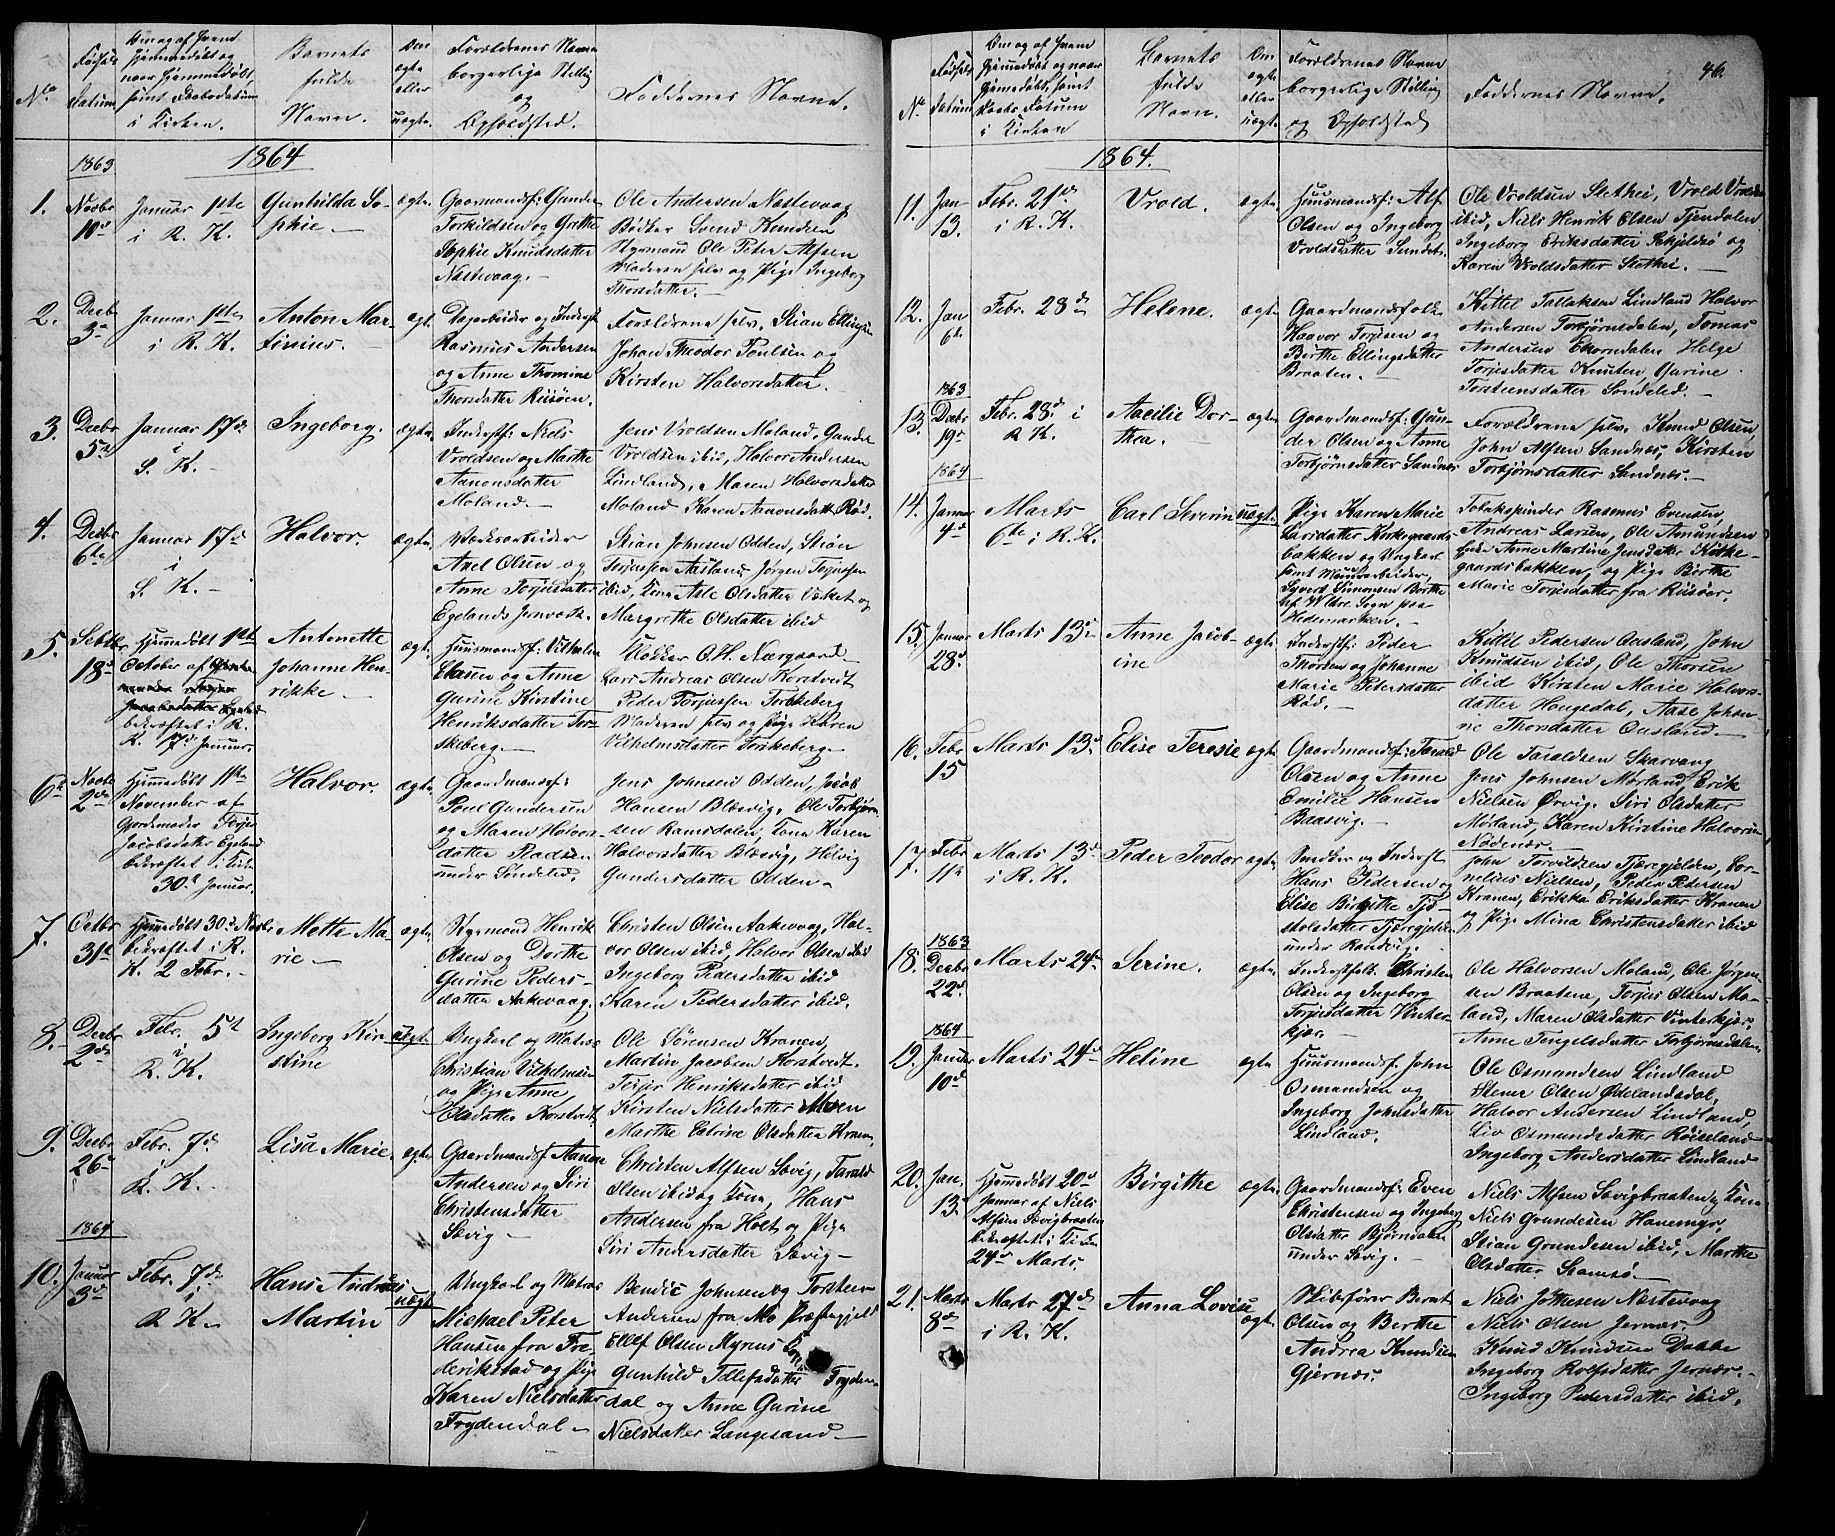 No
Fødsels
Datum
Barnets
fulde
Navn.
Om
ægte
eller
uægte.
Forældrenes Navne
borgerlige Stilling
og
Opholdsted.
Faddernes Navne.
1863
1864
1.
Novbr
10d
Januar 1ste
i R. K.
Gunhilda So-
phie.—
ægte.
Gaarmandsf: Gunder
Torkildsen og Grethe
Sophie Knudsdatter
Næstevaag.—
Ole Andersen Næstevaag
Bødker Svend Knudsen
Styrmand Ole Peter Alfsen
Moderen selv og Pige Ingeborg
Thorsdatter.—
2.
Decbr
3d
Januar 1ste
i R. K.
Anton Mar-
tinius.
ægt.
Dagarbeider og Inderst
Rasmus Andersen
og Anne Thomine
Thorsdatter Risøen.
Forældrene selv, Stian Ellingsen
Johan Theodor Poulsen og
Kirsten Halvorsdatter.
3.
Decbr
5te
Januar 17d
i
S. K.—
Ingeborg.
ægte.
Inderstf: Niels
Vroldsen og Marthe
Aanonsdatter
Moland.—
Jens Vroldsen Moland, Gunder
Vroldsen ibid, Halvor Andersen
Lindland, Maren Halvorsdatter
Moland Karen Aanonsdatt. Rød.
4.
Decbr
6te
Januar 17d
i
S. K.—
Halvor.
ægte.
Værksarbeider
Axel Olsen og
Anne Torjusdatter
Egelands Jernværk.
Stian Johnsen Odden, Stian
Terjussen Aasland, Jørgen Torjussen
ibid, Kone Asle Olsdatter Værket og
Margrethe Olsdatter ibid
5.
Septbr
18d
Hjemmedøbt 1ste
October af
bekræftet i R.
K. 17d Januar.
Antonette
Johanne Hen-
rikke—
ægt.
Huusmandsf: Vilhelm
og Anne
Gurine Kirstine
Henriksdatter Tor-
skeberg.—
Klokker O. H. Nærgaard—
Lars Andreas Olsen Korstvedt
Peder Torjussen Torskeberg
Moderen selv og Pige Karen
Vilhelmsdatter Torskeberg.—
6te
Novbr
2den
Hjemmedøbt 11te
November af
Gjordemoder Torjer
Jacobsdatter Egeland
bekræftet i Kirk.
30te Januar.
Halvor.
ægte.
Gaardmandsf:
Poul Gundersen
og Maren Halvors-
datter Pladsen
under Søndeled.
Jens Johnsen Odden, Jacob
Hansen Blæsvig, Ole Torbjørn-
sen Ramsdalen, Kone Karen
Halvorsdatter Blæsvig, Helvig
Gundersdatter Odden—
7.
Octbr
31te
Hjemmedøbt 30d Novbr
bekræftet i R.
K. 2 Febr.—
Mette Ma-
rie—
ægte.
Styrmand Henrik
Olsen og Dorthe
Gurine Peders-
datter Aakevaag.
Christen Olsen Aakevaag, Hal-
vor Olsen ibid, Halvor Olsen ibid
Ingeborg Pedersdatter ibid
Karen Pedersdatter ibid.
8.
Decbr
2den
Febr. 5t
i
R. K.
Ingeborg Kir-
stine
uægt.
Ungkarl og Matros
Christian Vilhelmsen
og Pige Anne
Elsdatter Korstvedt.
Ole Sørensen Kranen,
Martin Jacobsen Korstvedt.
Terjer Henriksdatter ibid
Kirsten Nielsdatter Moen
Marthe Catrine Olsdatter Kranen
9.
Decbr
26d
Febr. 7d.
i
R. K.—
Lisa Marie.
ægte.
Gaardmandsf Aanon
Andersen og Siri
Christensdatter
Søvig—
Christen Alfsen Søvig, Tarald
Olsen ibid og Kone, Hans
Andersen fra Holt og Pige
Siri Andersdatter Søvig—
1864
10.
Januar
3d
Febr. 7d
i
R. K.—
Hans Andreas
Martin
uægt.
Ungkarl og Matros
Michael Peter
Hansen fra Fre-
derikstad og Pige
Karen Nielsdatter
Frydendal—
Bendic Johnsen og Torsten
Andersen fra Mo Præstegjeld
Ellef Olsen Myrens Kone
Gunhild Tellefsdatter Fryden-
dal og Anne Gurine
Nielsdatter Langesand—
46.
No.
Fødsels
Datum
Barnets
fulde
Navn.
Om
ægte
eller
uægte.
Forældrenes Navne
borgerlige Stilling
og Opholdsted
Faddernes Navne.
1864.
11.
Jan
13.
Febr. 21d
i R. K.
Vrold.
ægte.
Huusmandsf: Alf
Olsen og Ingeborg
Vroldsdatter Sundet.
Ole Vroldsen Stethei, Vrold Vroldsen
ibid, Niels Henrik Olsen Tjendalen
Ingeborg Eriksdatter Skjeldsø og
Karen Vroldsdatter Stethei.—
12.
Jan
6te
Febr. 28d
Helene.
ægte.
Gaardmandsfolk
Haavor Torjesen og
Birthe Ellingsdatter
Braaten.—
Kittil Tallaksen Lindland Halvor
Andersen Torbjørnsdalen, Tomas
Andersen Ekorndalen Helge
Torjusdatter Knuten Gurine
Torsteensdatter Søndeled.
1863
13.
Decbr
19d
Febr. 28d i
R K.
Aacilie Dor-
thea.
ægte.
Gaardmandsf: Gun-
der Olsen og Anne
Torbjørnsdatter Sandnes
Forældrene selv. Knud Olsen,
John Alfsen Sandnes, Kirsten
Torbjørnsdatter Sandnes.—
1864
14.
Januar
4d
Marts
6te i R. K.
Carl Severin
uægt.
Pige Karen Marie
Larsdatter Kirkegaards-
bakken og Ungkarl
samt Murarbeider
Syvert Simonsen Borthe
af Vldre Sogn paa
Hedemarken.
Tobakspinder Rasmus Evensen,
Andreas Larsen, Ole Amundsen
Enke Anne Martine Jensdatter Kirke-
gaardsbakken, og Pige Birthe
Marie Torjesdatter fra Risøer.
15.
Januar
28d
Marts 13d
Anne Jacob-
ine
ægte.
Inderstf: Peder
Thorsen og Johanne
Marie Petersdatter
Rød.
Kittil Pedersen Aasland, John
Knudsen ibid, Ole Thorsen
ibid Kirsten Marie Halvors-
datter Haugedal, Aase Johan-
ne Thorsdatter Aasland.—
16.
Febr
15
Marts 13d.
Elise Teresie
ægte.
Gaardmandsf: Tarald
Olsen og Anne
Emilie Hansen
Braasvig.
Ole Taraldsen Skarvang
Jens Johnsen Mørland, Erik
Nielsen Ørvig. Siri Olsdatter
Mørland, Karen Kirstine Halvorsen
Nødenæs.
17.
Febr
11te
Marts 13d
i R. K.
Peder Teodor
ægte.
Smedker og Inderst
Hans Pedersen og
Elise Birgithe Tjø-
stolsdatter Tjæregjelen
under Randvig.
John Torvildsen Tjæregjelden, Cor-
nelius Nielsen, Peder Pedersen
Kranen, Erikka Eriksdatter Kranen
og Pige Mina Christensdatter ibid
1863
18.
Decbr
22d
Marts 24de
Serine.
ægte.
Inderstfolk. Christen
Olsen og Ingeborg
Torjusdatter Vinter-
kjær.
Ole Halvorsen Moland, Ole Jørgen-
sen Braatene, Torjus Olsen Mo-
land, Maren Olsdatter Vinterkjær,
Anne Tengelsdatter Torbjørnsdalen
1864
19.
Januar
10d
Marts 24d
Heline
ægte
Huusmandsf. John
Osmundsen og
Ingeborg Johnsdatter
Lindland.
Ole Osmundsen Lindland
Stener Olsen Ødelandsdal,
Halvor Andersen Lindland,
Liv Osmundsdatter Røiseland
Ingeborg Andersdatter Lindland
20.
Jan.
13.
Hjemmedøbt 20d
Januar af Niels
Alfsen Søvigbraaten
bekræftet i Kirken
24d Marts.
Birgithe
ægte.
Gaardmandsf: Even
Christensen og Ingeborg
Olsdatter Bjørndalen
under Søvig.
Niels Alfsen Søvigbraaten og Kone
Niels Grundesen Hanemyr,
Stian Grundesen ibid, Marthe
Olsdatter Stamsø.—
21.
Marts
8de
Marts 27d
i R. K.
Anna Lovise
ægte.
Skibsfører Bernt
Olsen og Berthe
Andrea Knudsen
Gjernæs.
Niels Jørgesen Næstevaag
Niels Olsen Jernæs.
Knud Knudsen Dobbe
Ingeborg Rolfsdatter Jernæs.—
Ingeborg Pedersdatter ibid.